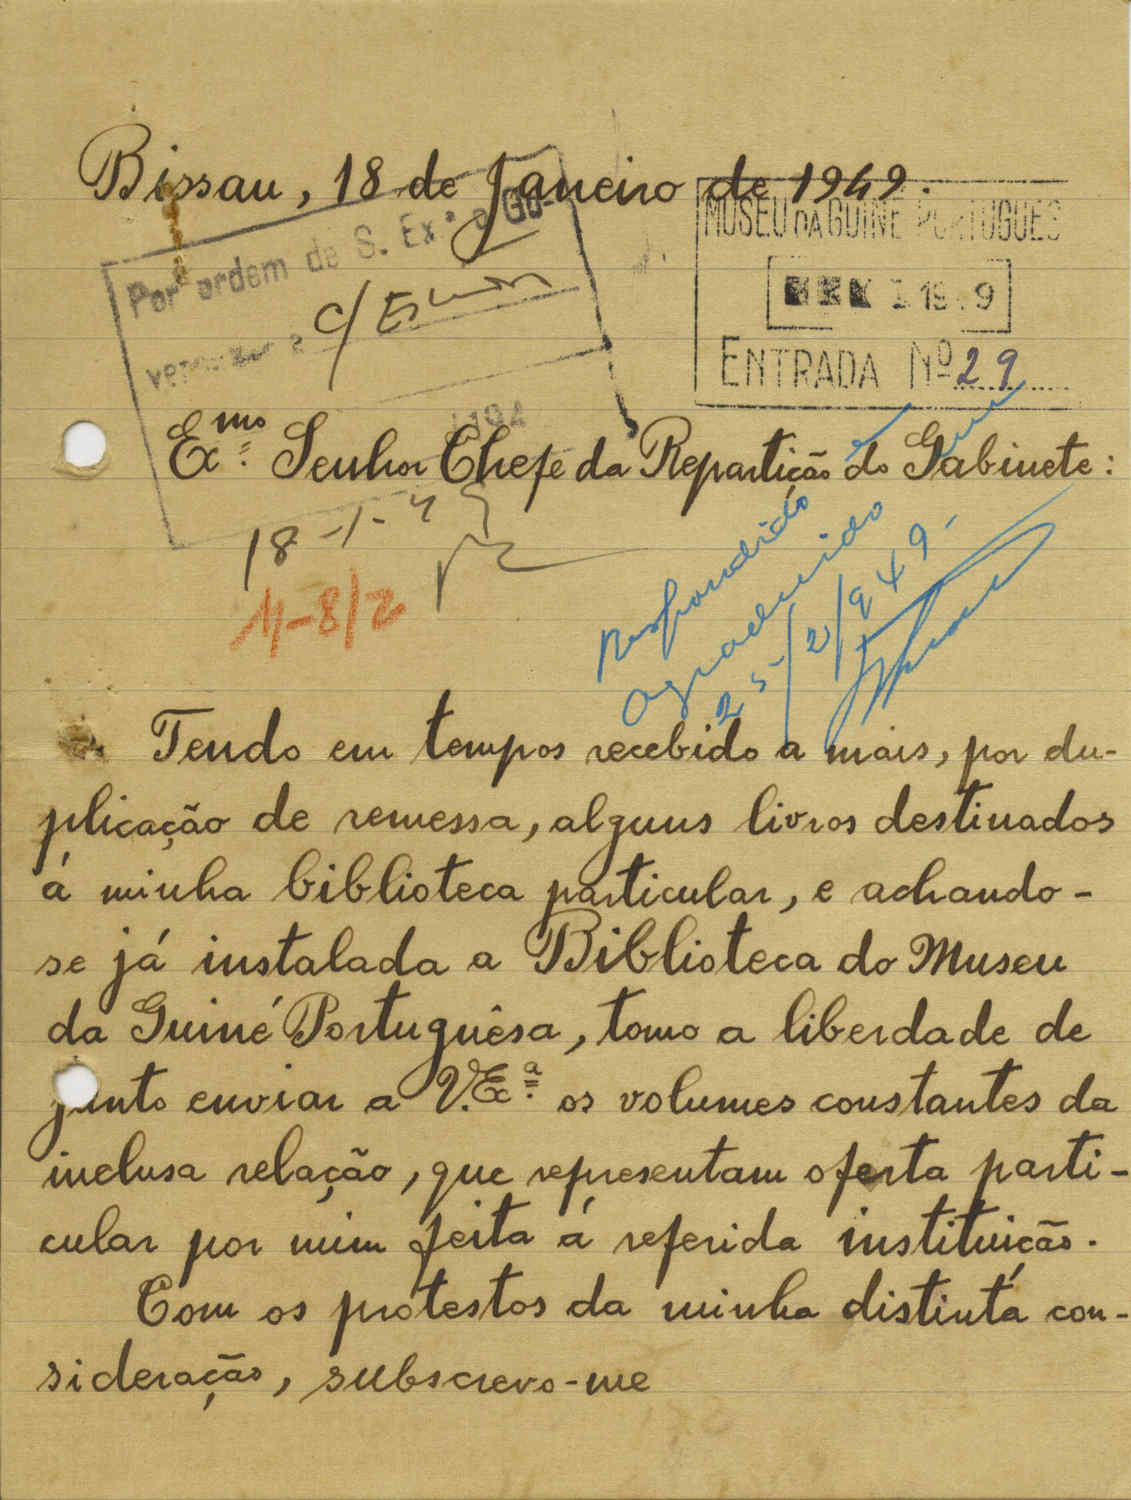 Bissau, 18 de Janeiro de 1949.
Por ordem de S. Ex.ª o Go-
MUSEU DA GUINÉ PORTUGUES
19 9
ENTRADA Nº 29
Ex.mo Senhor Chefe da Repartição do Gabinete:
18-1-4
11-8/2
Respondido
agradecido
25/2/949-
Tendo em tempos recebido a mais, por du-
plicação de remessa, alguns livros destinados
á minha biblioteca particular, e achando-
se já instalada a Biblioteca do Museu
da Guiné Portuguêsa, tomo a liberdade de
junto enviar a V.Ex.ª os volumes constantes da
inclusa relação, que representam oferta parti-
cular por mim feita á referida instituição.
Com os protestos da minha distinta con-
sideração, subscrevo-me